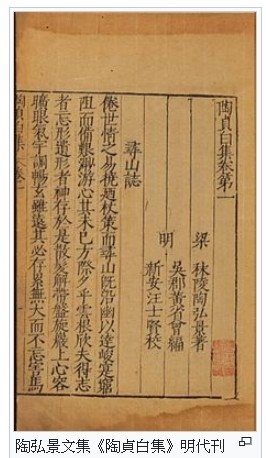 陶貞白集卷第一
梁 秣陵陶弘景著
明 吳郡黃省曾編
新安汪士賢校
尋山誌
倦世情之易撓迺杖策而尋山既沿幽以達峻實窮
阻而備艱渺游心其未已方際夕乎雲根欣夫得志
者忘形遺形者神存於是散髮解帶盤旋巖上心容
曠眼氣宇調暢玄雖遠其必存累無大而不忘害馬
陶貞白集 卷一
陶弘景文集《陶貞白集》明代刊